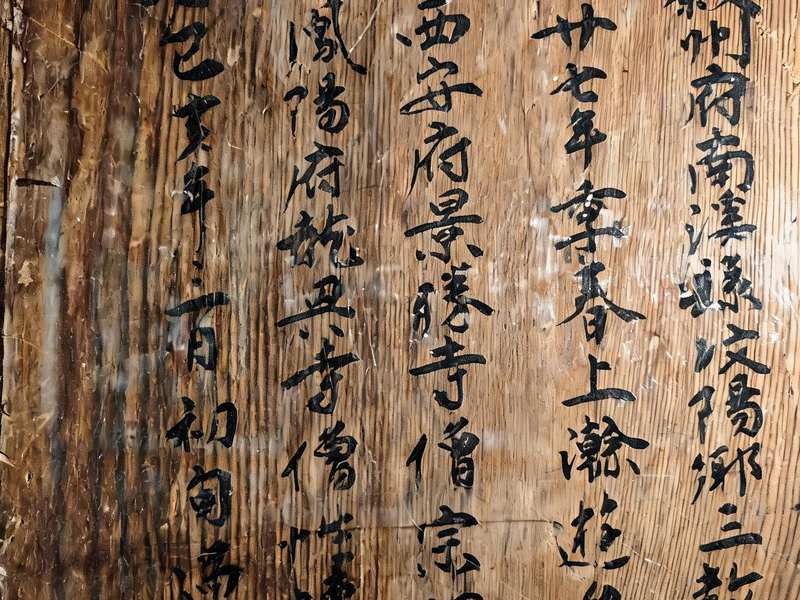 州府南溪縣汶陽鄉三教
廿七年季春上瀚遊
西安府景勝寺僧宗
鳳陽府龍興寺僧性
己亥年三月初旬